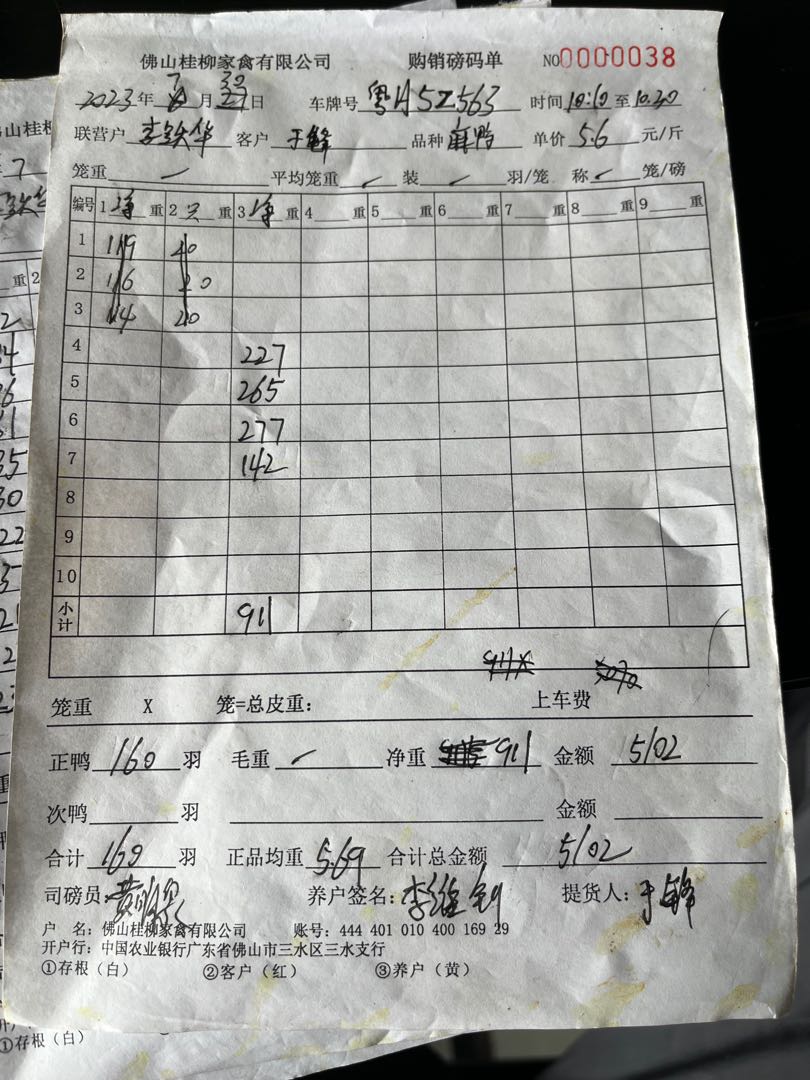 佛山桂柳家禽有限公司 购销磅码单 NO0000038
2023年 7月 30日 车牌号 粤A5Z563 时间 10:10 至 10.20
联营户 李铁华 客户 于锋 品种 麻鸭 单价 5.6 元/斤
笼重 平均笼重 装 羽/笼 称 笼/磅
编号 1 净 重 2 只 重 3 净 重 4 重 5 重 6 重 7 重 8 重 9 重
1 119 20
2 116 20
3 114 20
4 227
5 265
6 277
7 142
8
9
10
小计 911
笼重 X 笼=总皮重: 上车费
正鸭 160 羽 毛重 净重 911 金额 5102
次鸭 羽 金额
合计 160 羽 正品均重 5.69 合计总金额 5102
司磅员 养户签名: 提货人: 于锋
户 名: 佛山桂柳家禽有限公司 账号: 444 401 010 400 169 29
开户行: 中国农业银行广东省佛山市三水区三水支行
①存根(白) ②客户(红) ③养户(黄)
①存根(白)